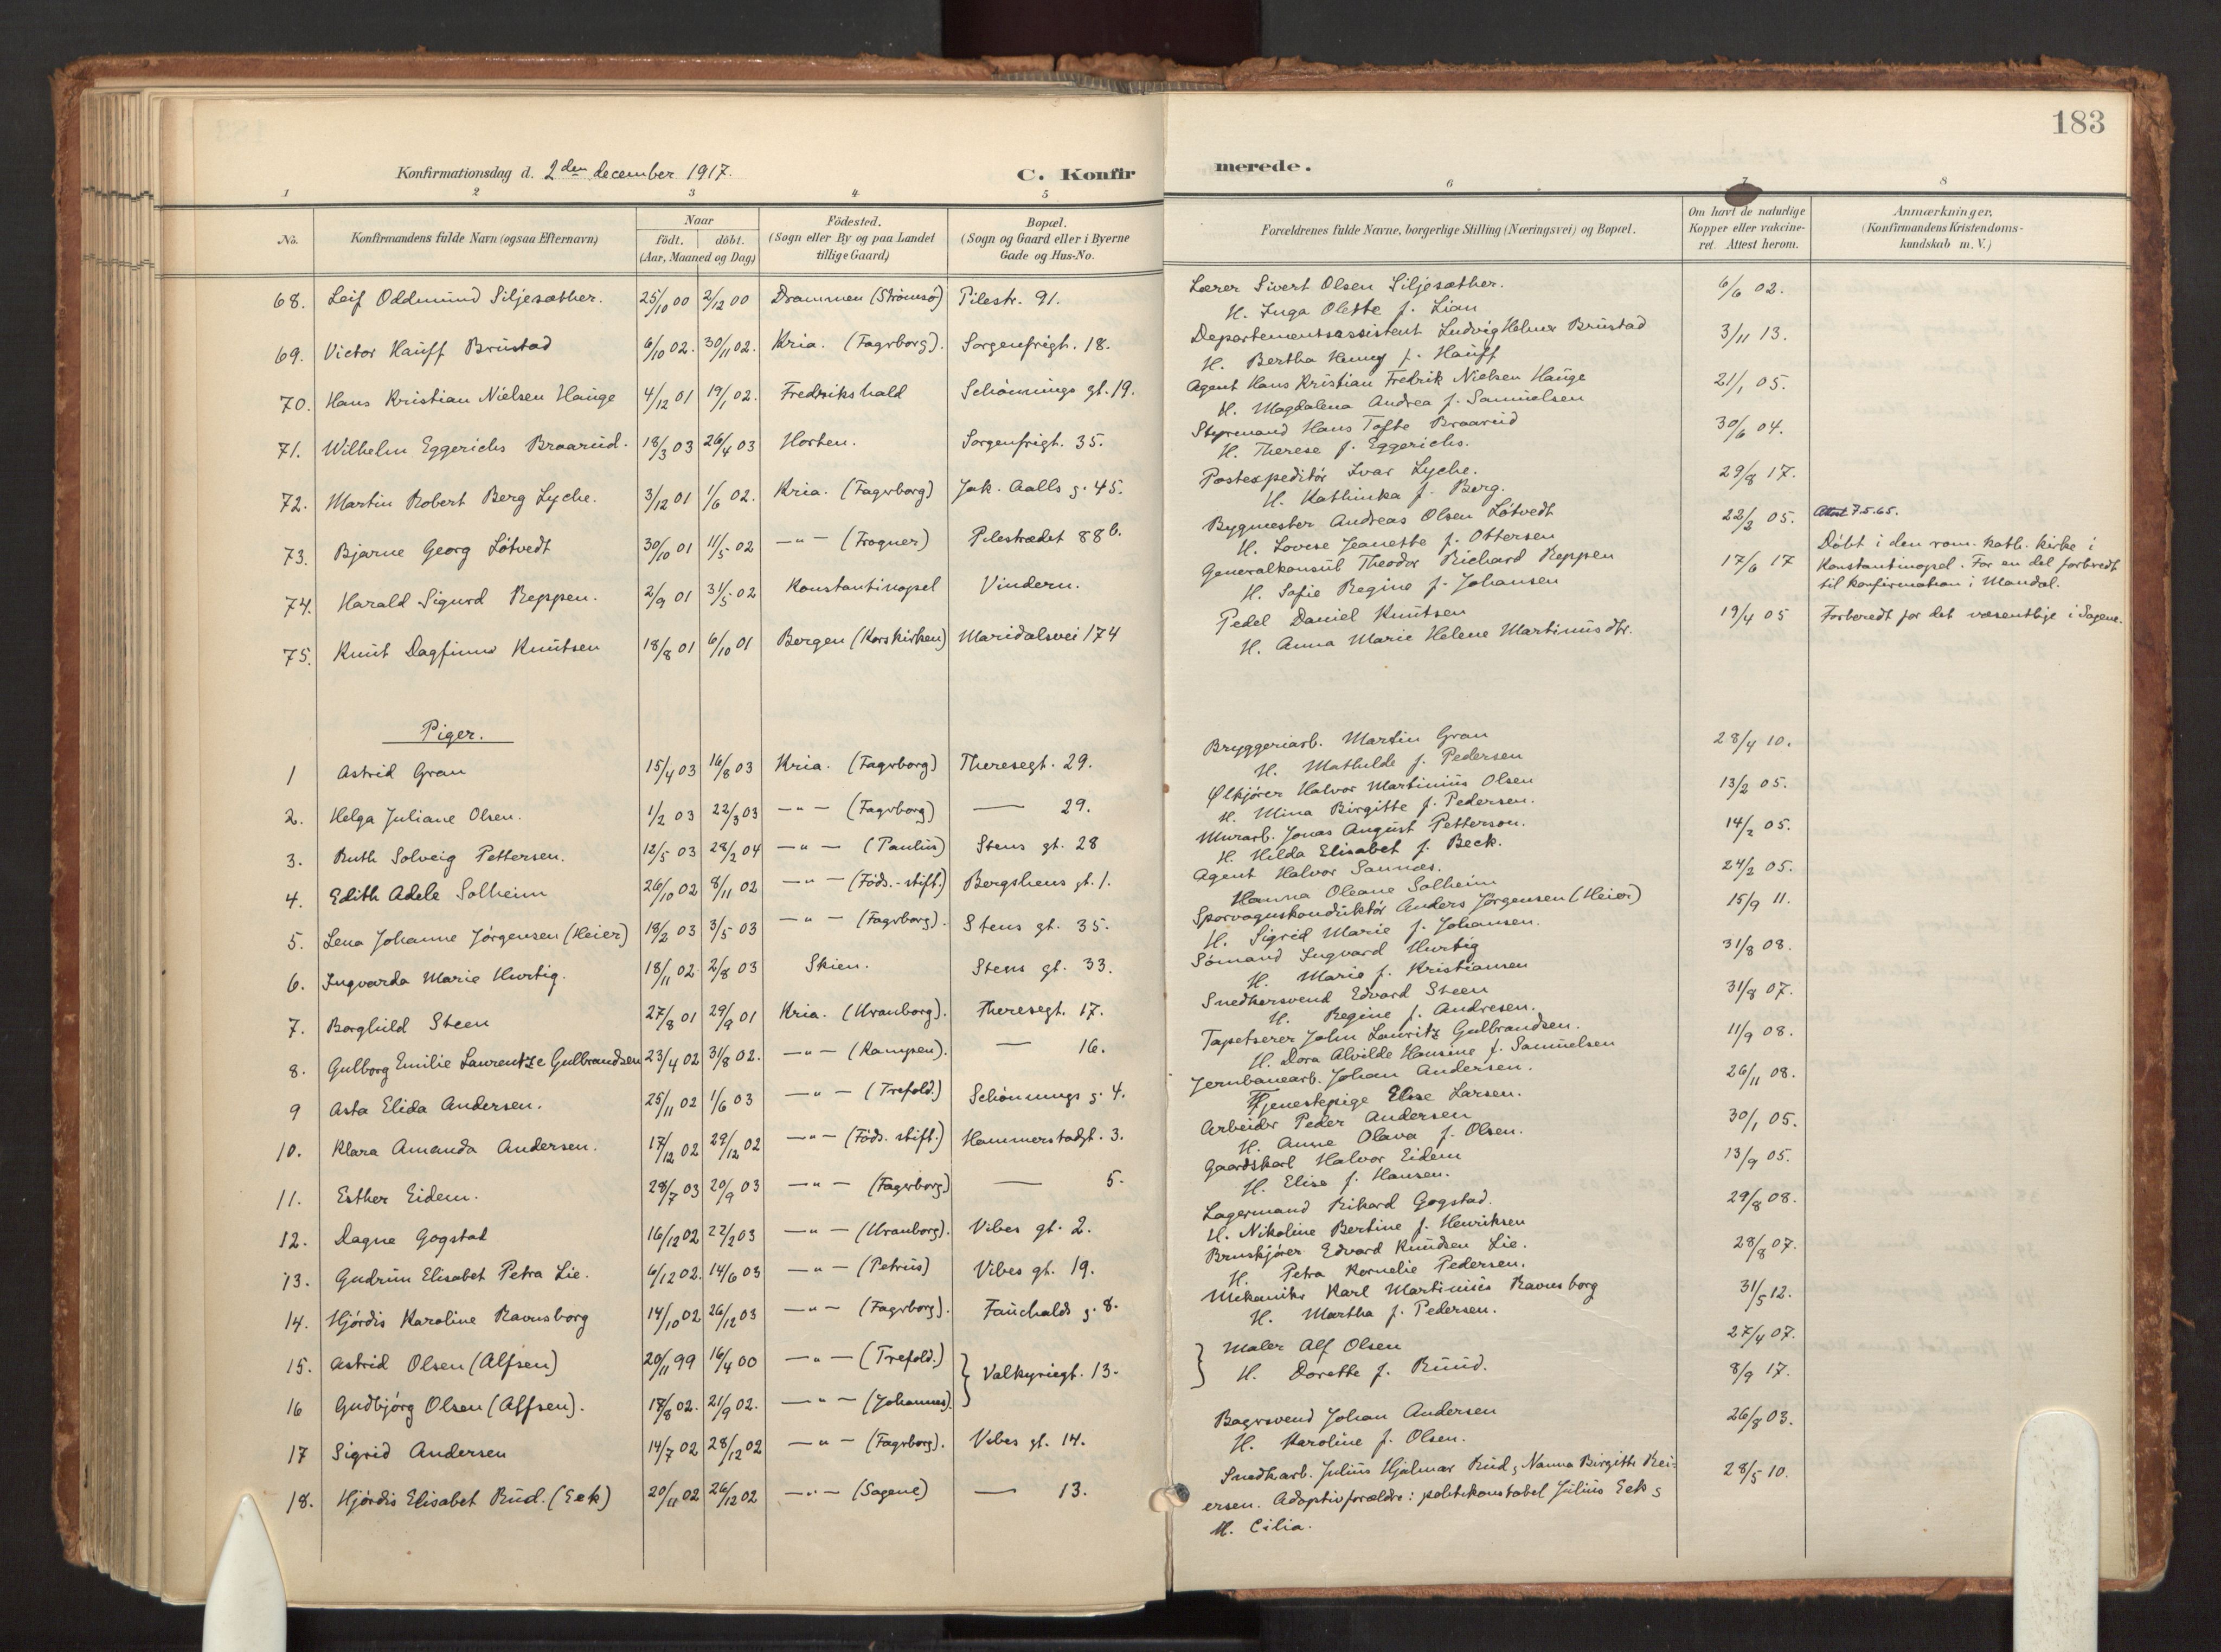 183
Konfirmationsdag d. 2den december 1917. C. Konfirmerede.
1 2 3 4 5 6 8
No. Konfirmandens fulde Navn (ogsaa Efternavn) Naar födt. döbt. (Aar, Maaned og Dag) Födested. (Sogn eller By og paa Landet tillige Gaard) Bopæl. (Sogn og Gaard eller i Byerne Gade og Hus-No. Forældrenes fulde Navne, borgerlige Stilling (Næringsvei) og Bopæl. Om havt de naturlige Kopper eller vakcineret. Attest herom. Anmærkninger, (Konfirmandens Kristendomskundskab m. V.)
68. Leif Oddmund Siljesæther. 25/10 00 2/12 00 Drammen (Strömsö) Pilestr. 91. Lærer Sivert Olsen Siljesæther. 6/6 02.
H. Inga Olette f. Lian
69. Victor Hauff Brustad 6/10 02. 30/11 02. Kria. (Fagerborg). Sorgenfrigt. 18. Departementsassistent Ludvig Helmer Brustad 3/11 13.
H. Bertha Henny f. Hauff
70. Hans Kristian Nielsen Hauge 4/12 01 19/1 02. Fredrikshald Schönnings gt. 19. Agent Hans Kristian Fredrik Nielsen Hauge 21/1 05.
H. Magdalena Andrea f. Samuelsen
71. Wilhelm Eggerichs Braarud. 18/3 03 26/4 03 Horten. Sorgenfrigt. 35. Styrmand Hans Tofte Braarud 30/6 04.
H. Therese f. Eggerichs.
72. Martin Robert Berg Lyche. 3/12 01 1/6 02. Kria. (Fagerborg) Jak. Aalls g. 45. Postexpeditör Ivar Lyche. 29/8 17.
H. Kathinka f. Berg.
73. Bjarne Georg Lötvedt 30/10 01 11/5 02 —"— (Frogner) Pilestrædet 88 b. Bygmester Andreas Olsen Lötvedt 22/2 05. Attest 7.5.65.
H. Lovise Jeanette f. Ottersen
74. Harald Sigurd Reppen. 2/9 01 31/5 02 Konstantinopel Vindern. Generalkonsul Theodor Richard Reppen 17/6 17 Döbt i den rom. kath. kirke i
H. Sofie Regine f. Johansen Konstantinopel. For en del forberedt
til konfirmation i Mandal.
75. Knut Dagfinn Knutsen 18/8 01 6/10 01 Bergen (Korskirken) Maridalsvei 174 Pedel Daniel Knutsen 19/4 05 Forberedt for det væsentlige i Sagene.
H. Anna Marie Helene Martinusdtr.
Piger.
1 Astrid Gran 15/4 03 16/8 03 Kria. (Fagerborg) Theresegt. 29. Bryggeriarb. Martin Gran 28/4 10.
H. Mathilde f. Pedersen
2. Helga Juliane Olsen. 1/2 03 22/3 03 —"— (Fagerborg) — 29. Ölkjörer Halvor Martinius Olsen 13/2 05.
H. Mina Birgitte f. Pedersen.
3. Ruth Solveig Pettersen. 12/5 03 28/2 04 —"— (Paulus) Stens gt. 28 Murarb. Jonas August Petterson. 14/2 05.
H. Hilda Elisabet f. Beck.
4. Edith Adele Solheim 26/10 02 8/11 02 —"— (Föds.-stift.) Bergsliens gt. 1. Agent Halvor Sannes. 24/2 05.
Hanna Oleane Solheim
5. Lena Johanne Jörgensen (Heier) 18/2 03 3/5 03 —"— (Fagerborg). Stens gt. 35. Sporvognskonduktör Anders Jörgensen (Heier) 15/9 11.
H. Sigrid Marie f. Johansen.
6. Ingvarda Marie Hurtig. 18/11 02. 2/8 03 Skien. Stens gt. 33. Sömand Ingvard Hurtig 31/8 08.
H. Marie f. Kristiansen
7. Borghild Steen 27/8 01 29/9 01 Kria. (Uranborg). Theresegt. 17. Snedkersvend Edvard Steen 31/8 07.
H. Regine f. Andresen.
8. Gulborg Emilie Laurentze Gulbrandsen 23/4 02 31/8 02. —"— (Kampen). — 16. Tapetserer John Lauritz Gulbrandsen. 11/9 08.
H. Dora Alvilde Hansine f. Samuelsen
9 Asta Elida Andersen. 25/11 02 1/6 03 —"— (Trefold.) Schönnings g. 4. Jernbanearb. Johan Andersen. 26/11 08.
Tjenestepige Elise Larsen.
10. Klara Amanda Andersen. 17/12 02 29/12 02 —"— (Föds. stift.) Hammerstadgt. 3. Arbeider Peder Andersen 30/1 05.
H. Anne Olava f. Olsen.
11. Esther Eidem. 28/7 03 20/9 03 —"— (Fagerborg) — 5. Gaardskarl Halvor Eidem 13/9 05.
H. Elise f. Hansen.
12. Dagne Gogstad 16/12 02 22/2 03 —"— (Uranborg). Vibes gt. 2. Lagermand Rikard Gogstad. 29/8 08.
H. Nikoline Bertine f. Henriksen
13. Gudrun Elisabet Petra Lie. 6/12 02. 14/6 03 —"— (Petrus) Vibes gt. 19. Bruskjörer Edvard Knudsen Lie. 28/8 07.
H. Petra Kornelie Pedersen.
14. Hjördis Karoline Ravnsborg 14/10 02 26/12 03 —"— (Fagerborg). Fauchalds g. 8. Mekaniker Karl Martinius Ravnsborg 31/5 12.
H. Martha f. Pedersen.
15. Astrid Olsen (Alfsen) 20/11 99 16/4 00 —"— (Trefold.) } Valkyriegt. 13. } Maler Alf Olsen 27/4 07.
16 Gudbjörg Olsen (Alfsen). 18/8 02. 21/9 02. —"— (Johannes). H. Dorette f. Ruud. 8/9 17.
17 Sigrid Andersen 14/7 02 28/12 02 —"— (Fagerborg). Vibes gt. 14. Bagersvend Johan Andersen 26/8 03.
H. Karoline f. Olsen.
18. Hjördis Elisabet Rud. (Eek) 20/11 02 26/12 02 —"— (Sagene) — 13. Snedkarb. Julius Hjalmar Rud, Nanna Birgitte Rei= 28/5 10.
ersen. Adoptivforældre: politikonstabel Julius Eek
H. Cilia.